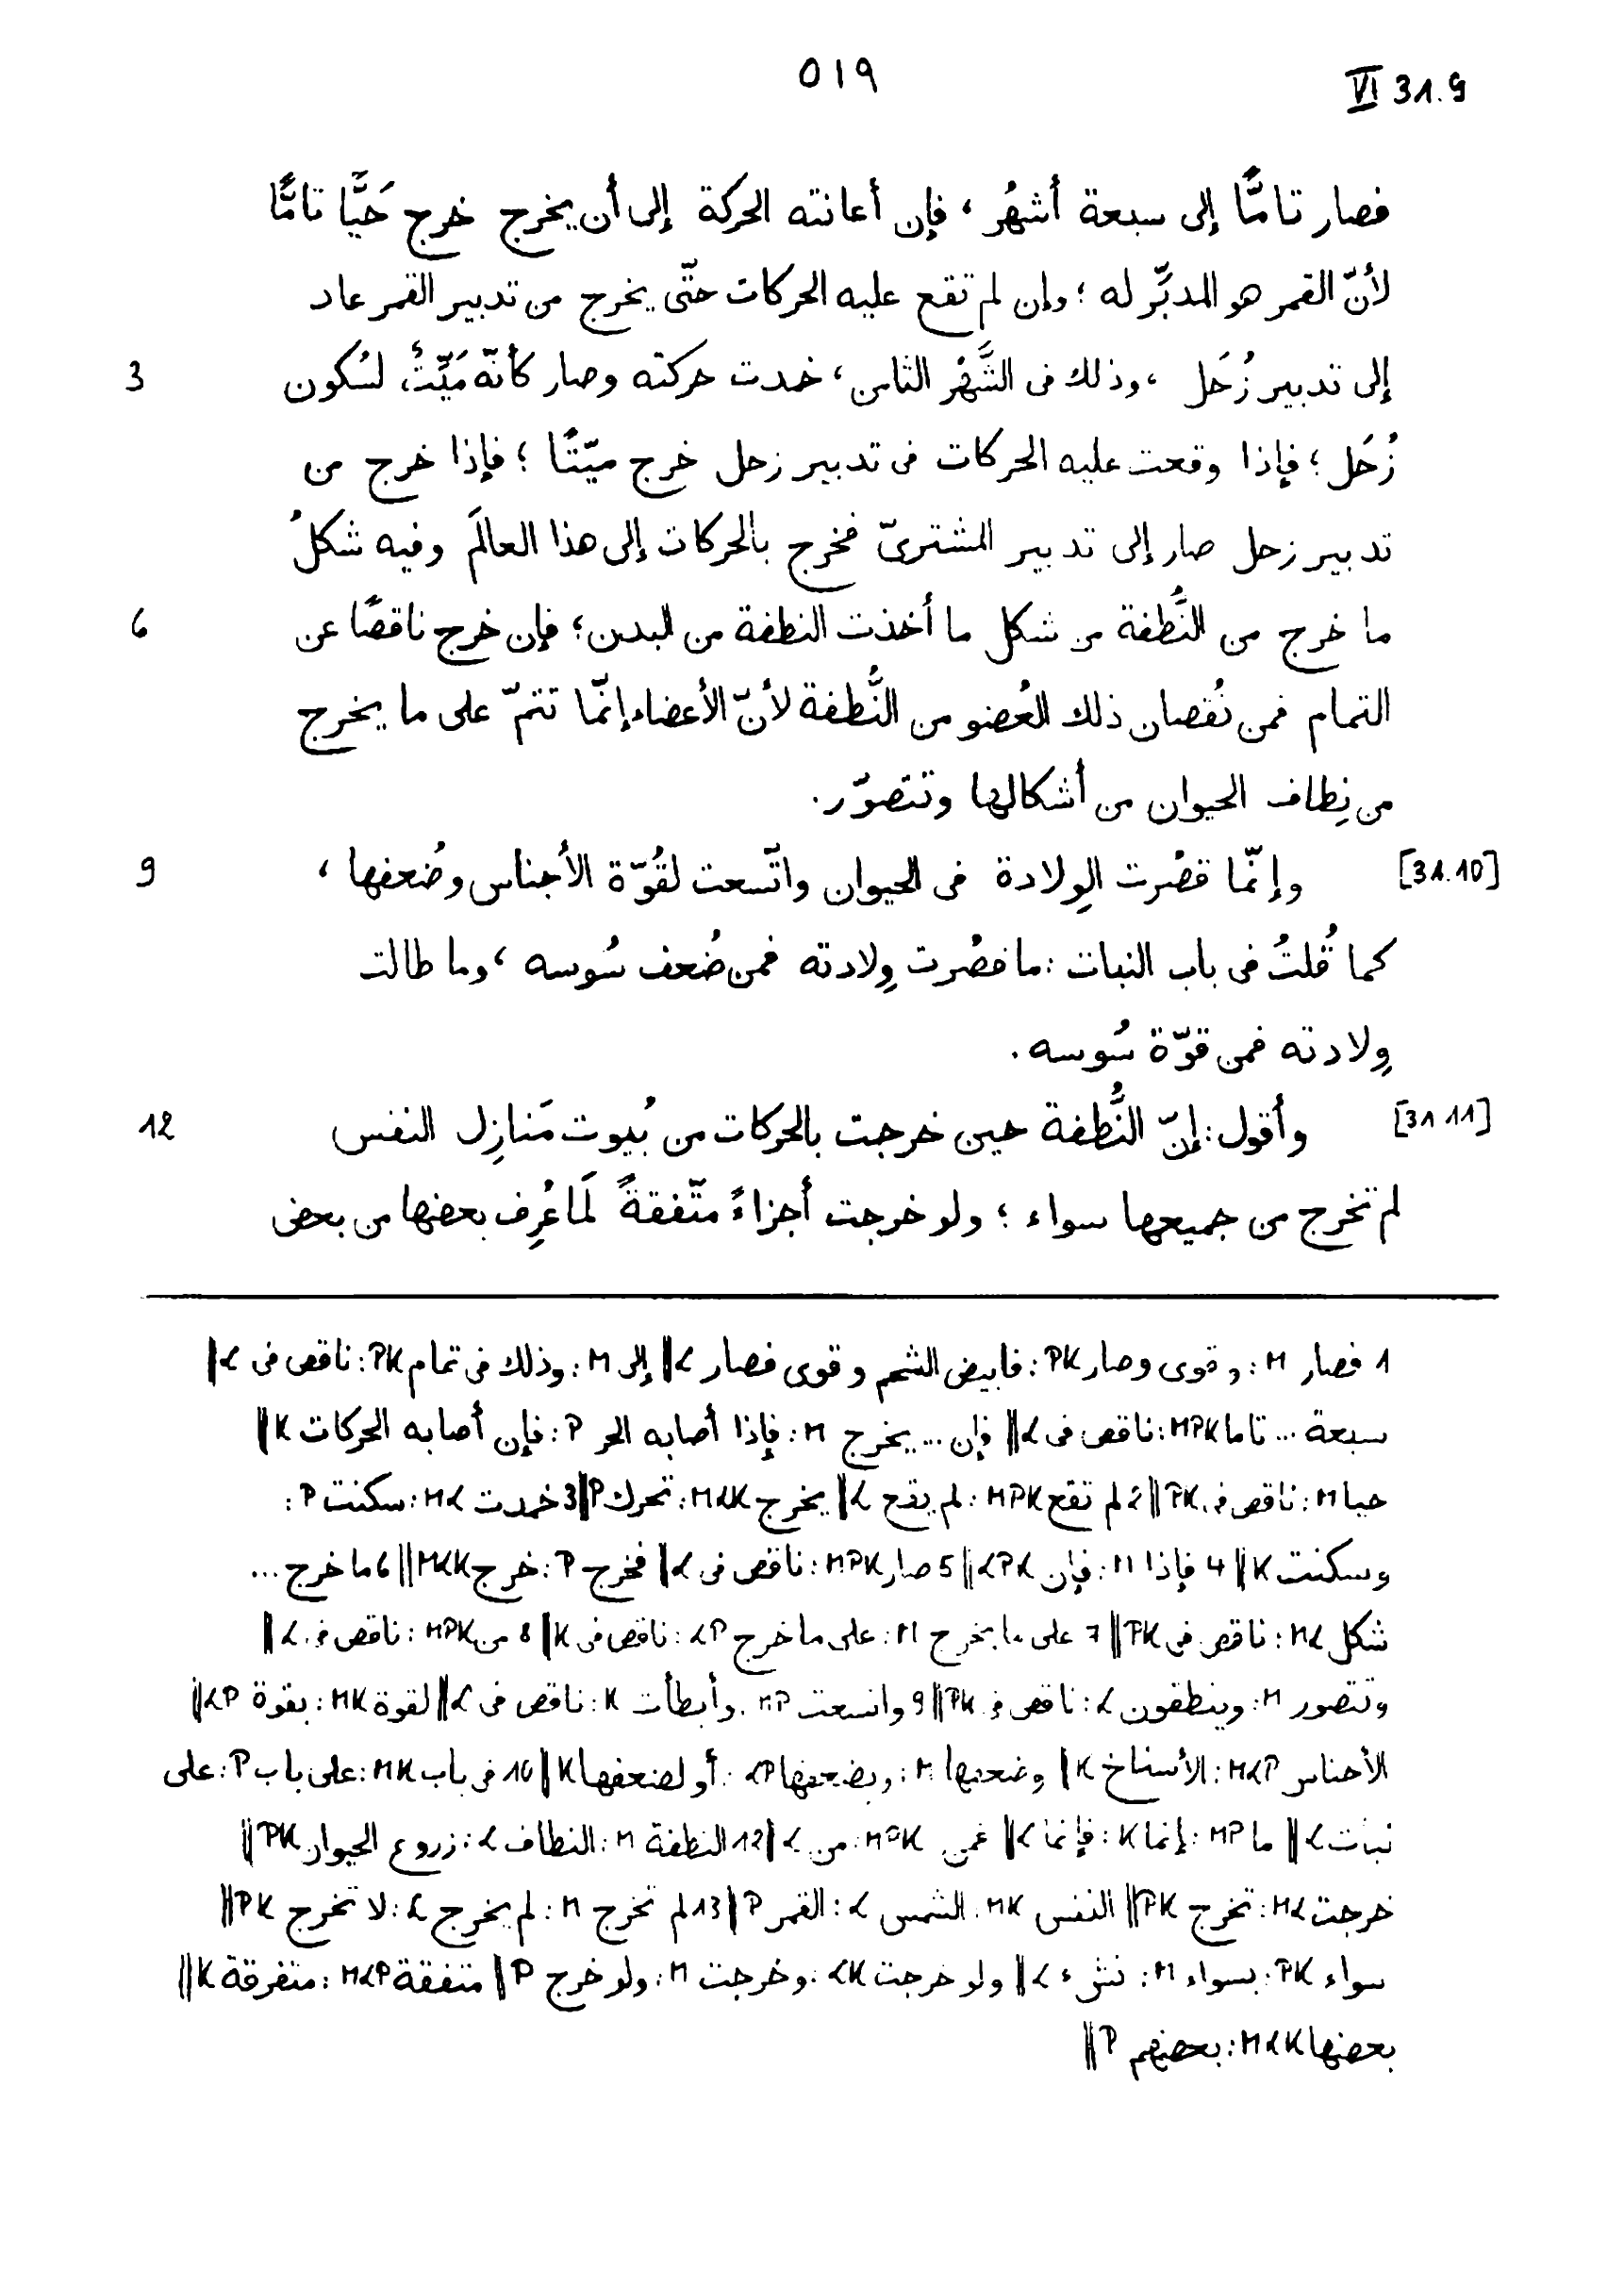 ٥١٩
VI 31.9
فصار تامًّا إلى سبعة أشهُر ، فإن أعانته الحركة إلى أن يخرج خرج حَيًّا تامًّا
لأنّ القمر هو المدبّر له ؛ وإن لم تقع عليه الحركات حتّى يخرج من تدبير القمر عاد
3 إلى تدبير زُحَل ، وذلك فى الشَّهْر الثامن ، خمدت حركته وصار كأنّه مَيِّتٌ ، لسُكون
زُحَل ؛ فإذا وقعت عليه الحركات فى تدبير زحل خرج ميّتًا ؛ فإذا خرج من
تدبير زحل صار إلى تدبير المشترىّ فخرج بالحركات إلى هذا العالَم وفيه شكلُ
6 ما خرج من النُّطفة من شكل ما أخذت النطفة من البدن ؛ فإن خرج ناقصًا عن
التمام فمن نُقصان ذلك العُضو من النُّطفة لأنّ الأعضاء إنّما تتمّ على ما يخرج
من نِطاف الحيوان من أشكالها وتتصوّر .
9 [31.10] وإنّما قصُرت الوِلادة فى الحيوان واتّسعت لقُوّة الأجناس وضُعفها ،
كما قُلتُ فى باب النبات : ما قصُرت وِلادته فمن ضُعف سُوسه ، وما طالت
وِلادته فمن قوّة سُوسه .
12 [31.11] وأقول : إنّ النُّطفة حين خرجت بالحركات من بُيوت مَنازِل النفس
لم تخرج من جميعها سواء ؛ ولو خرجت أجزاءً متّفقةً لَما عُرِف بعضها من بعض
1 فصار M : وقوى وصار PK : فابيض الشحم وقوى فصار L || إلى M : وذلك فى تمام PK : ناقص فى L ||
سبعة ... تاما MPK : ناقص فى L || فإن ... يخرج M : فإذا أصابه الحر P : فإن أصابه الحركات K ||
حيا M : ناقص فى PK || 2 لم تقع MPK : لم يقع L || يخرج MLK : تحرك P || 3 خمدت ML : سكنت P :
وسكنت K || 4 فإذا M : فإن LPK || 5 صار MPK : ناقص فى L || فخرج P : خرج MLK || 6 ما خرج ...
شكل ML : ناقص فى PK || 7 على ما يخرج M : على ما خرج LP : ناقص فى K || 8 من MPK : ناقص فى L ||
وتتصور M : وينطقون L : ناقص فى PK || 9 واتسعت MP : وأبطأت K : ناقص فى L || لقوة MK : بقوة LP ||
الأجناس MLP : الأسناخ K || وضعفها M : وبضعفها LP : أو لضعفها K || 10 فى باب MK : على باب P : على
نبات L || ما MP : إنما K : فإنما L || فمن MPK : من L || 12 النطفة M : النطاف L : زروع الحيوان PK ||
خرجت ML : تخرج PK || النفس MK : الشمس L : القمر P || 13 لم تخرج M : لم يخرج L : لا تخرج PK ||
سواء PK : بسواء M : L || ولو خرجت LK : وخرجت M : ولو خرج P || متفقة MLP : متفرقة K ||
بعضها MLK : بعضهم P ||